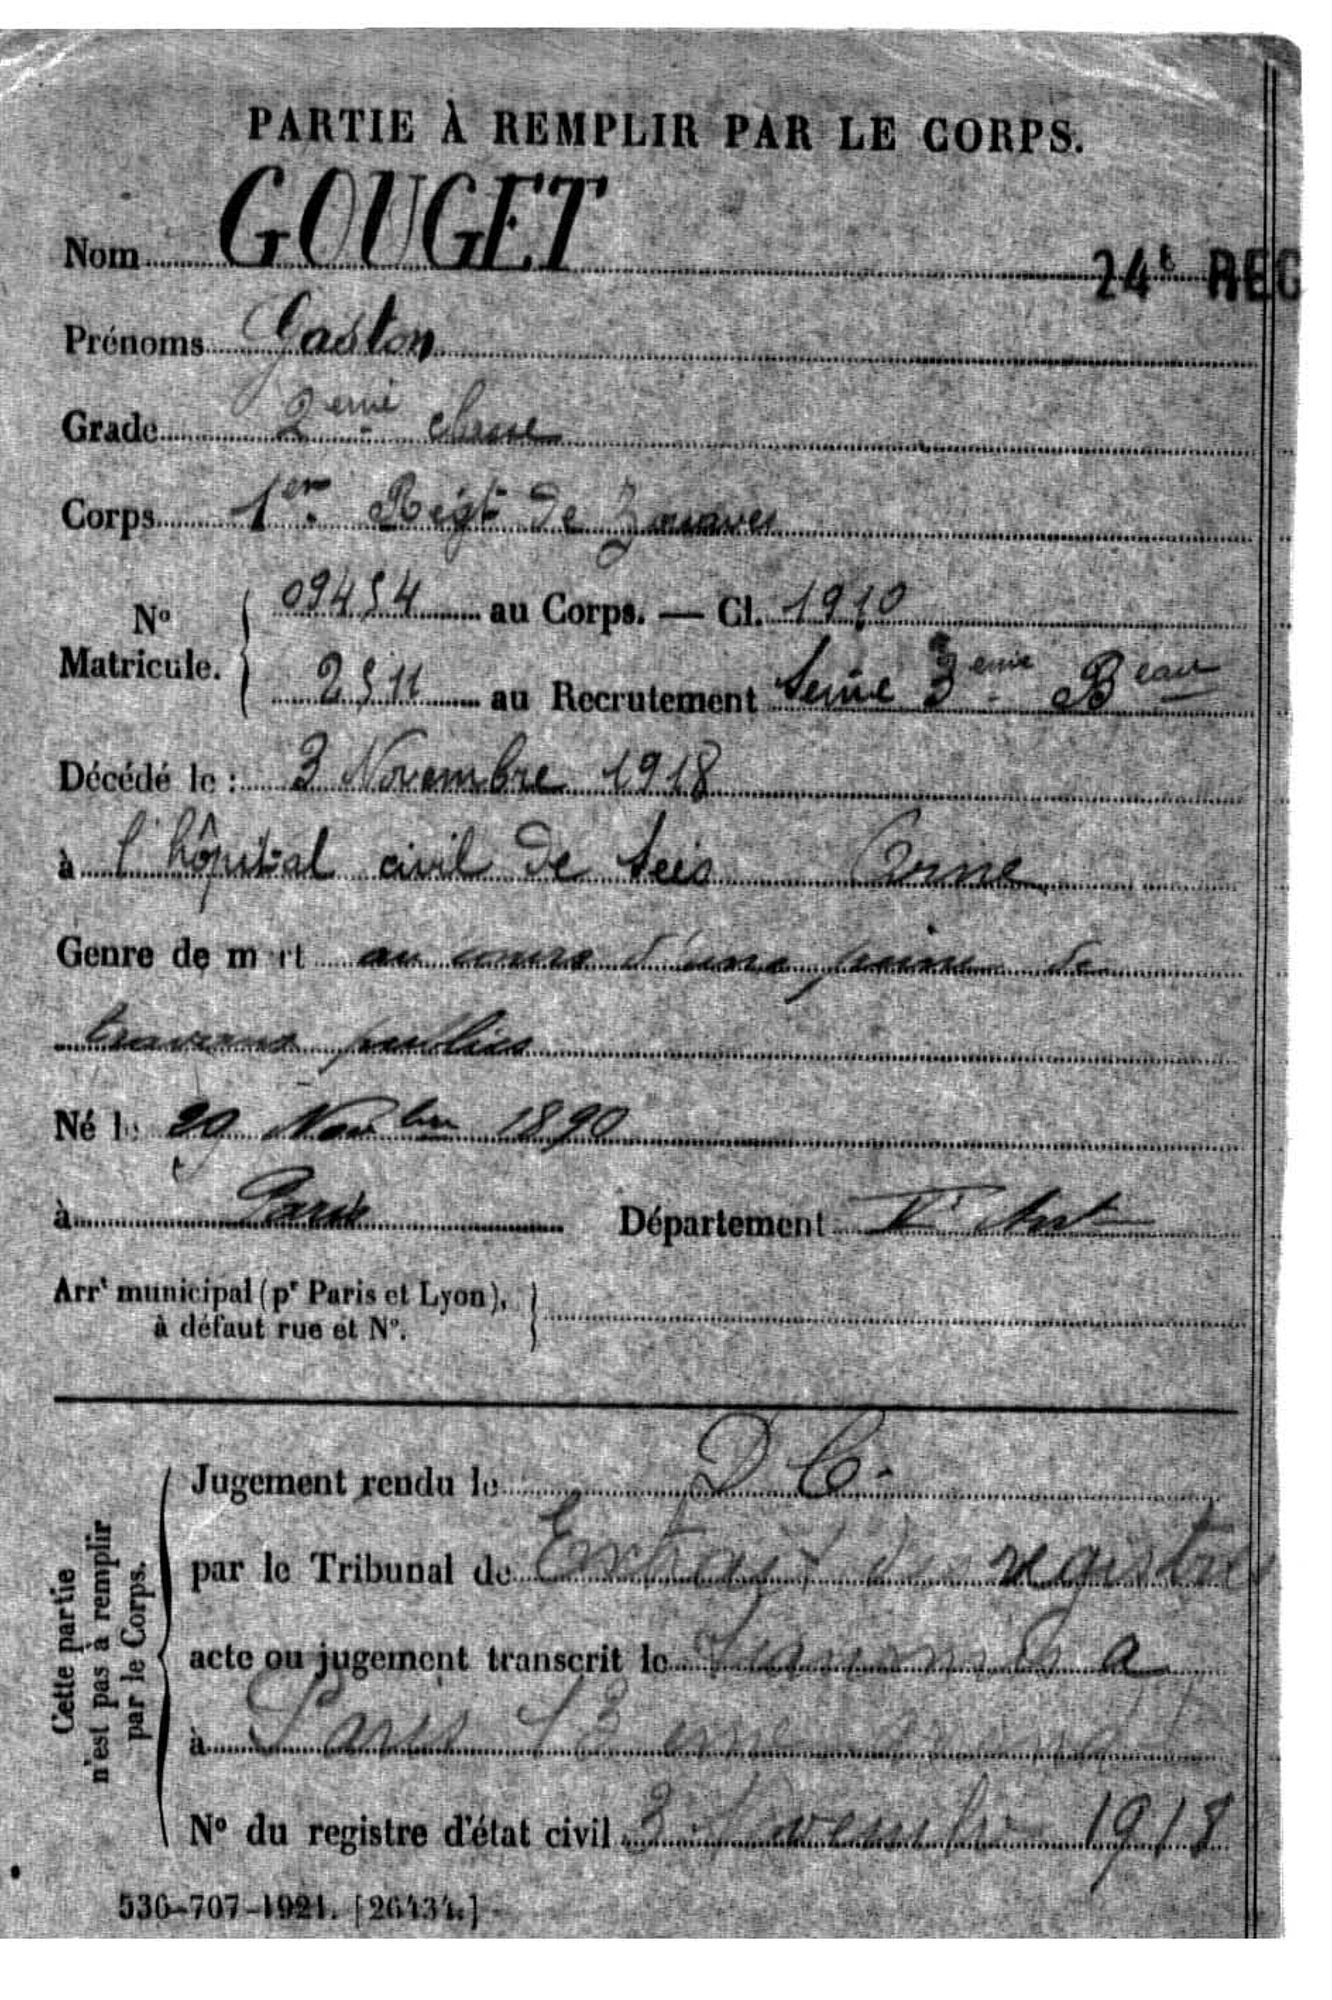 PARTIE À REMPLIR PAR LE CORPS.
Nom GOUGET
24e REG
Prénoms Gaston
Grade 2eme classe
Corps 1er Régt de Zouaves
No Matricule. { 09454 au Corps. — Cl. 1910
2511 au Recrutement Seine 3eme Beau
Décédé le : 3 Novembre 1918
à l'hôpital civil de Sées Orne
Genre de m rt au cours d'une peine de
travaux publics
Né l 29 Novbre 1890
à Paris Département Vt
Arrt municipal (pr Paris et Lyon),
à défaut rue et No. }
Cette partie
n'est pas à remplir
par le Corps.
Jugement rendu le D C.
par le Tribunal de Extrait des registres
acte ou jugement transcrit le transmis a
à Paris 13 eme arrondt
No du registre d'état civil 3 Novembre 1918
536-707-1921. [26434.]